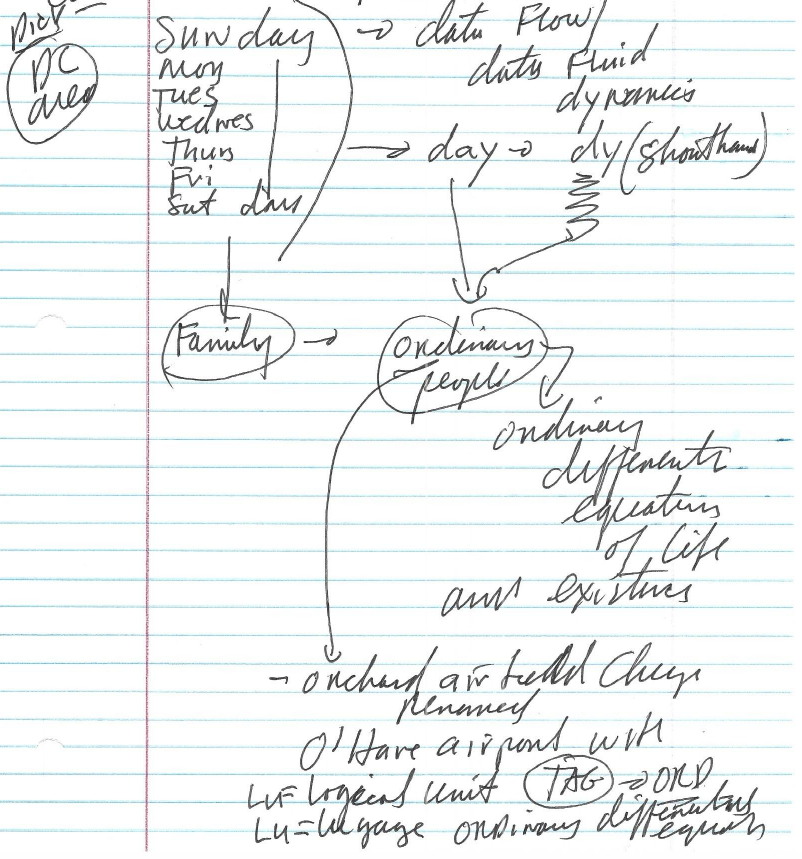 DC
area
Sunday → data Flow
data Fluid
dynamics
Mon
Tues
Wednes
Thurs
Fri
Sat days
→ day → dy (shorthand)
Family → ordinary
people
ordinary
differente
equations
of life
and existences
- orchard air field
renamed
O'Hare airport with
LU= logical unit TAG → ORD
LU= lugage ordinary differentials
equats